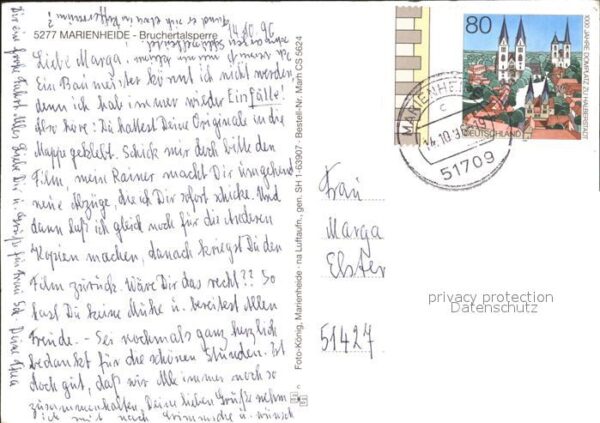 5277 MARIENHEIDE - Bruchertalsperre
14.10.96
Liebe Marga,
Ein Baumeister könnt ich nicht werden,
denn ich hab immer wieder Einfälle!
Also höre: Du hattest Deine Originale in die
Mappe geklebt. Schick mir doch bitte den
Film, mein Rainer macht Dir umgehend
neue Abzüge, die ich Dir sofort schicke. Und
dann laß ich gleich noch für die Anderen
Kopien machen, danach kriegst Du den
Film zurück. Wäre Dir das recht?? So
hast Du keine Mühe u. bereitest Allen
Freude. - Sei nochmals ganz herzlich
bedankt für die schönen Stunden. Ist
doch gut, daß wir Alle immer noch so
zusammenhalten. Deine lieben Grüße nehm
ich mit nach u. wünsch
Dir eine gute Fahrt. Alles Liebe Dir u. Grüße für Deine
Foto-König, Marienheide · na Luftaufn., gen. SH 1-63907 - Bestell-Nr. Marh CS 5624
80
1000 JAHRE DOMPLATZ ZU HALBERSTADT
DEUTSCHLAND
MARIENHEIDE
c
14.10.9
51709
Frau
Marga
Elster
51427
privacy protection
Datenschutz